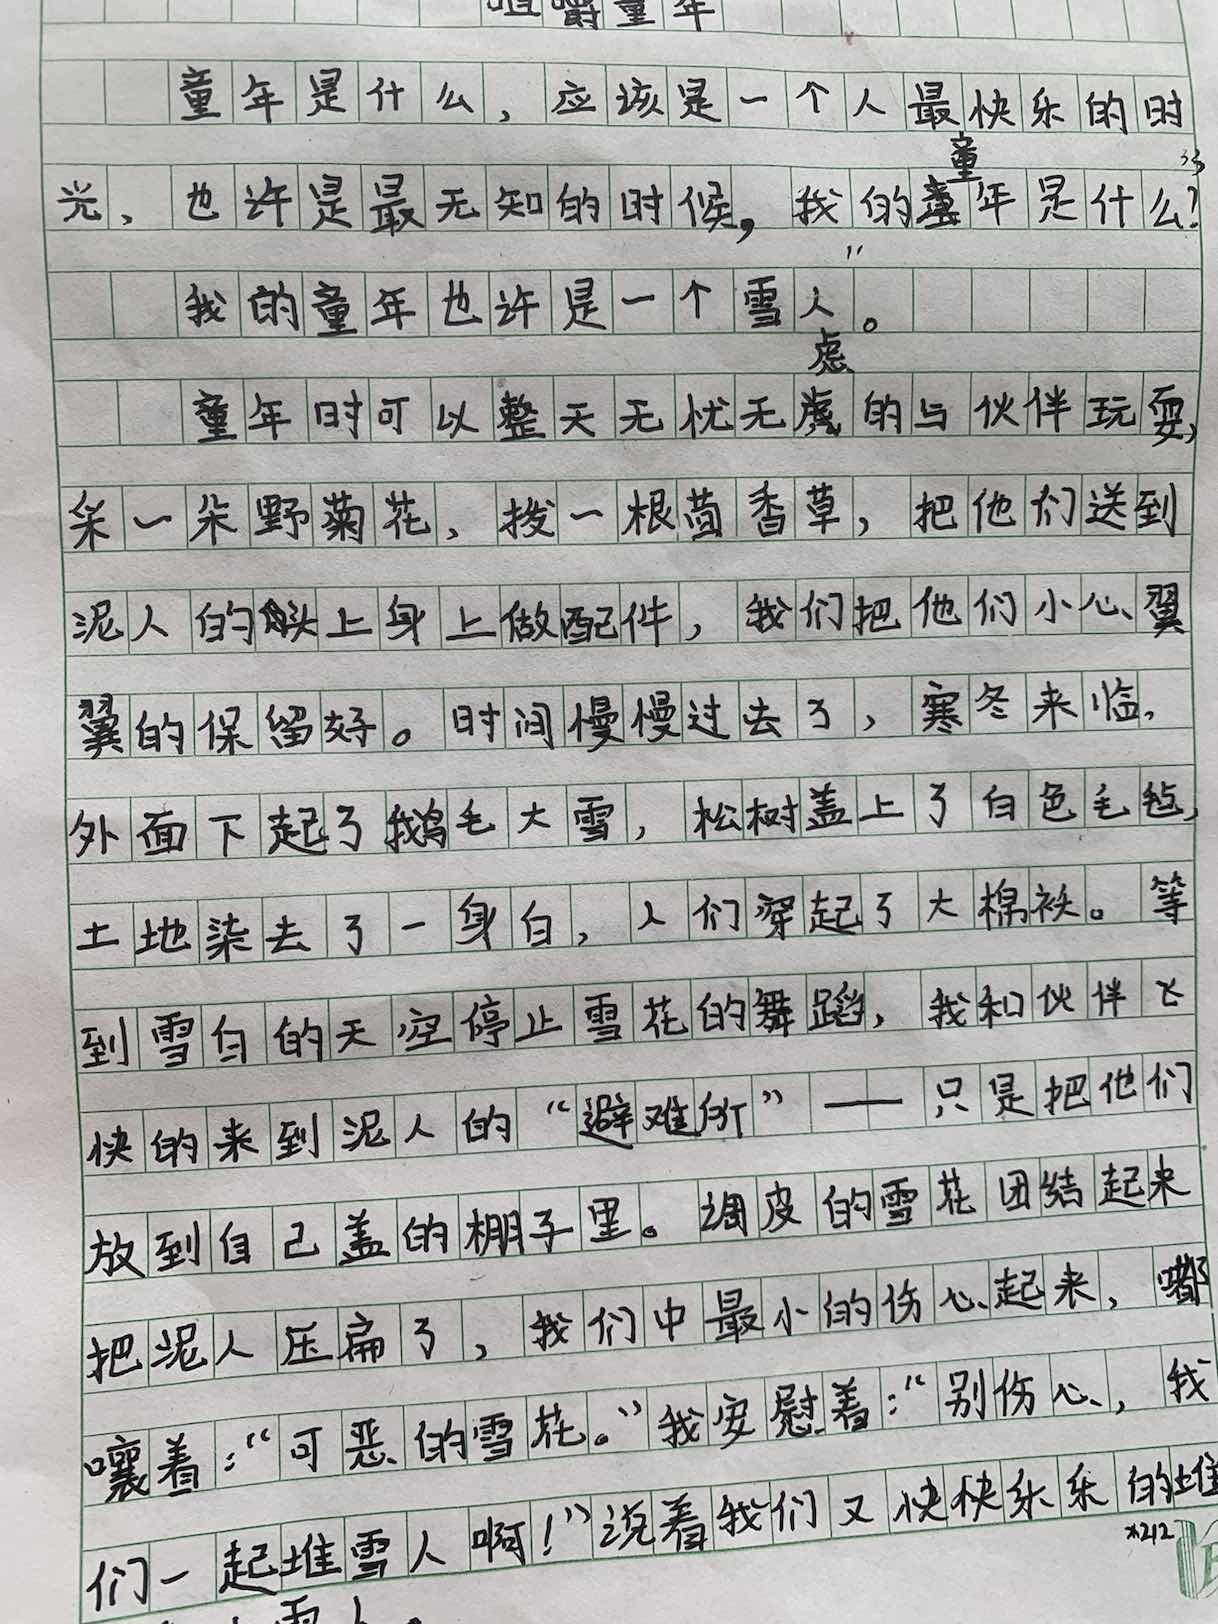 咀嚼童年
童年是什么，应该是一个人最快乐的时
光、也许是最无知的时候，我的童年是什么？
我的童年也许是一个雪人。
童年时可以整天无忧无虑的与伙伴玩耍，
采一朵野菊花、拨一根茴香草，把他们送到
泥人的头上身上做配件，我们把他们小心翼
翼的保留好。时间慢慢过去了，寒冬来临，
外面下起了鹅毛大雪，松树盖上了白色毛毡，
土地染去了一身白，人们穿起了大棉袄。等
到雪白的天空停止雪花的舞蹈，我和伙伴飞
快的来到泥人的“避难所”——只是把他们
放到自己盖的棚子里。调皮的雪花团结起来
把泥人压扁了，我们中最小的伤心起来，嘟
囔着：“可恶的雪花。”我安慰着：“别伤心，我
们一起堆雪人啊！”说着我们又快快乐乐的堆
雪人。